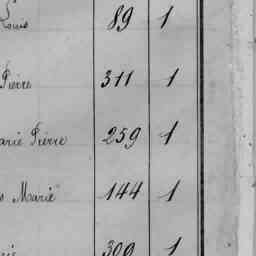 Louis 89 1
Pierre 311 1
arie Pierre 259 1
s Marie 144 1
309 1